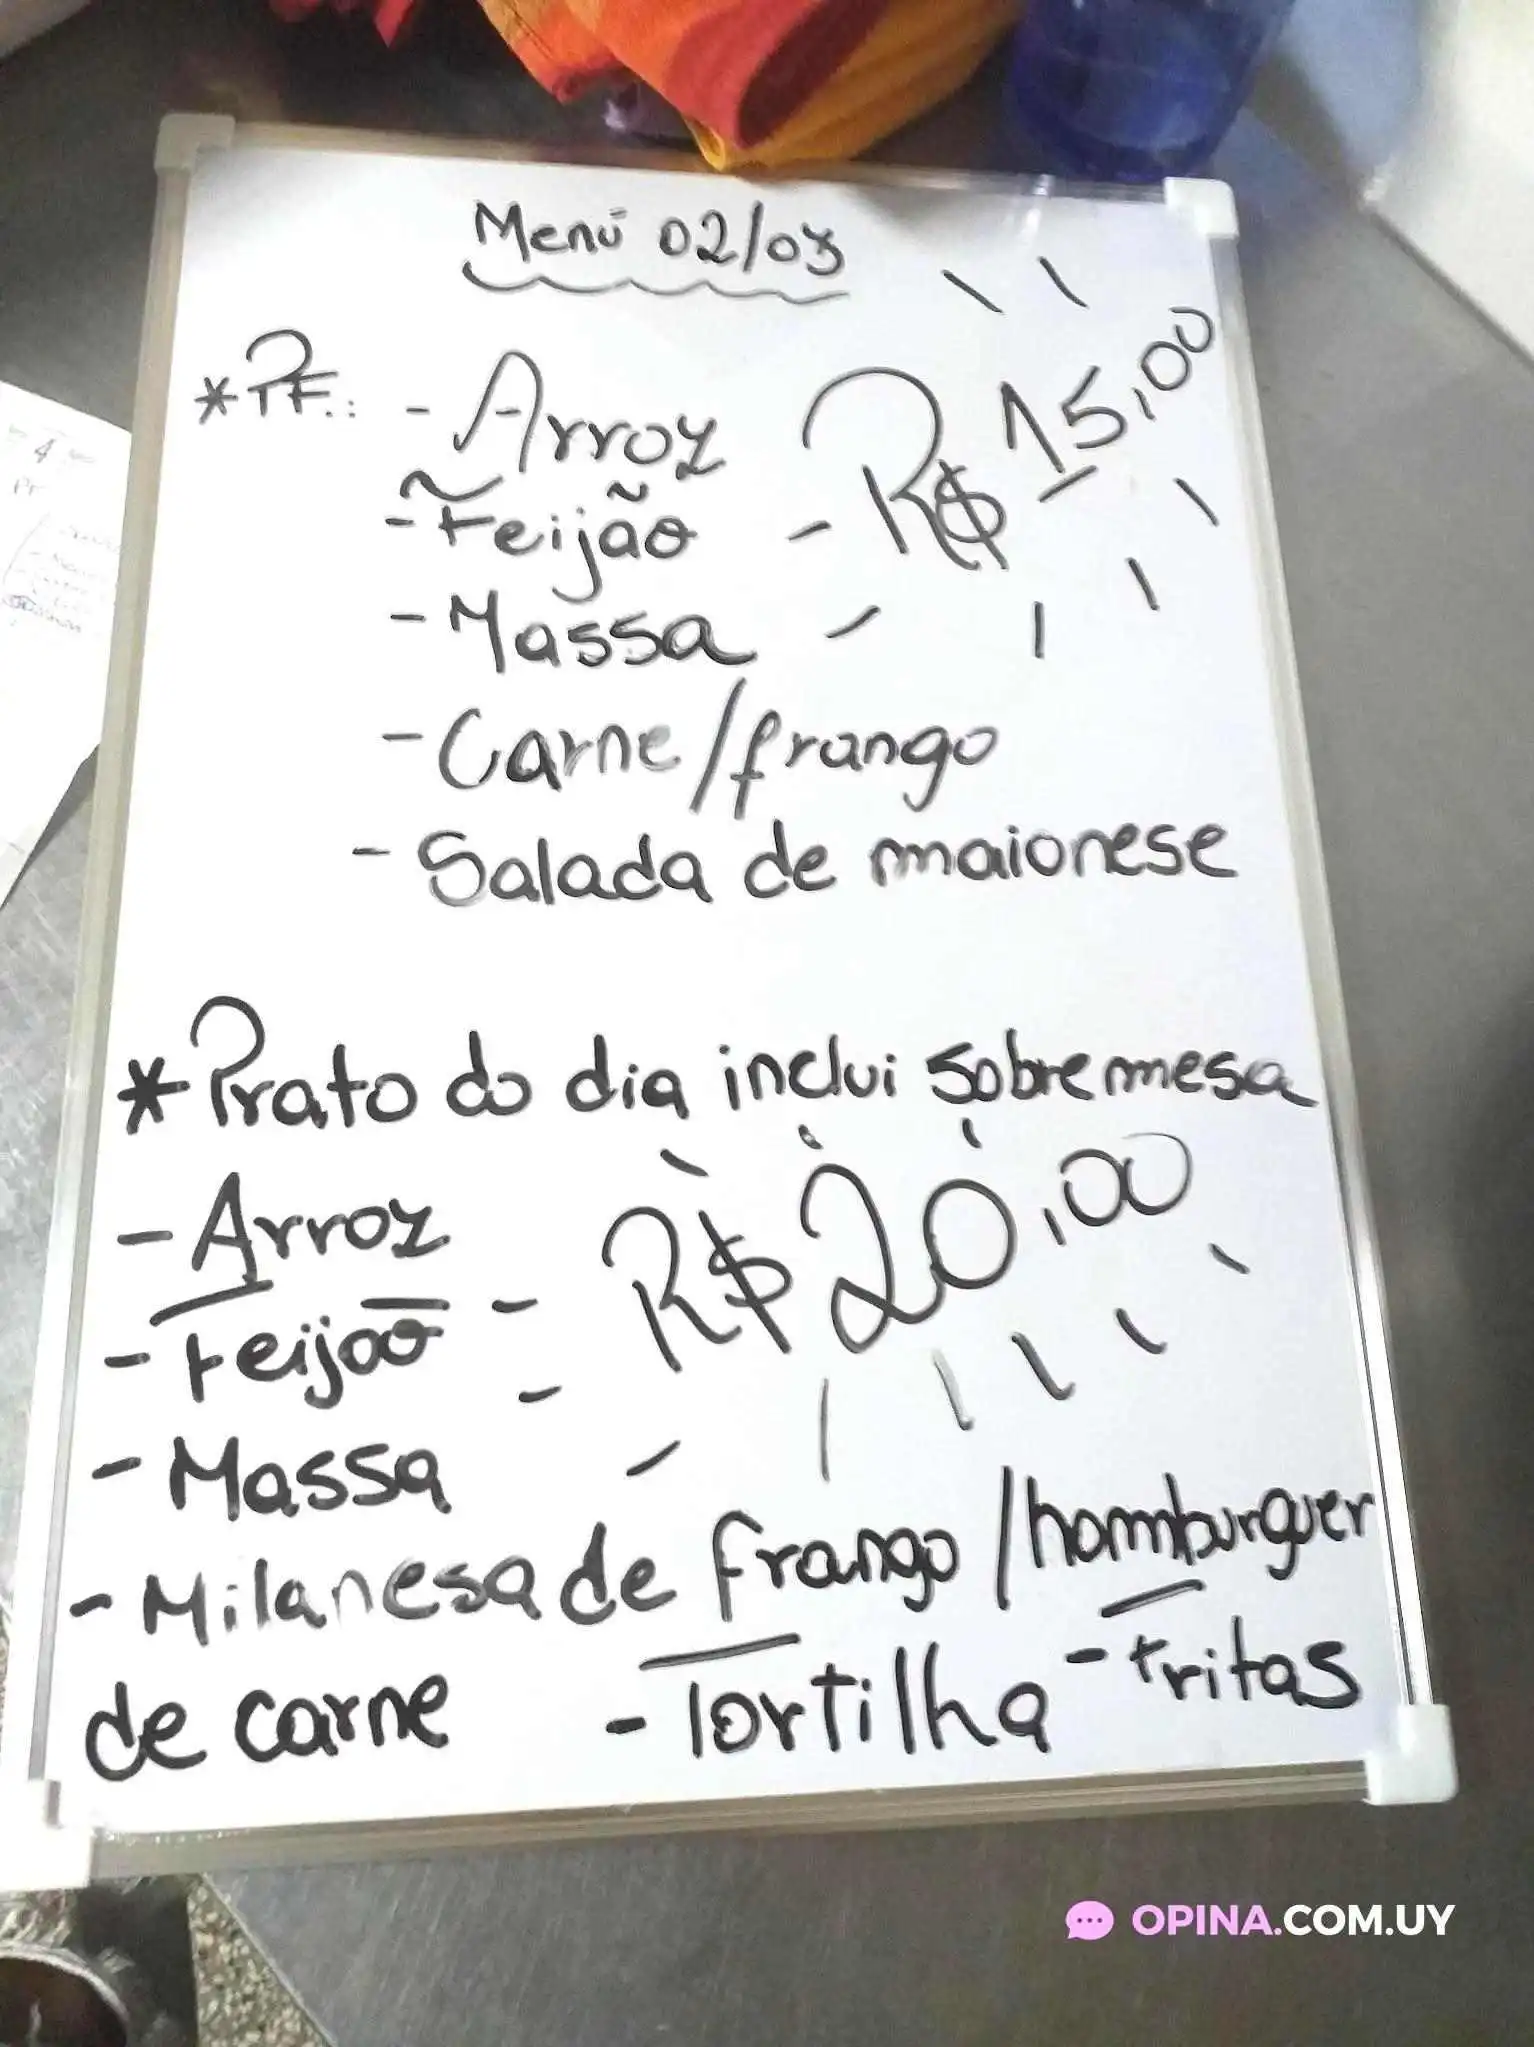 Menú 02/03
*PF.:
- Arroz
R$ 15,00
- Feijão
- Massa
- Carne/frango
- Salada de maionese
*Prato do dia inclui sobremesa
- Arroz
R$ 20,00
- Feijão
- Massa
- Milanesa de frango/hamburguer
de carne - Tortilha - Fritas
OPINA.COM.UY